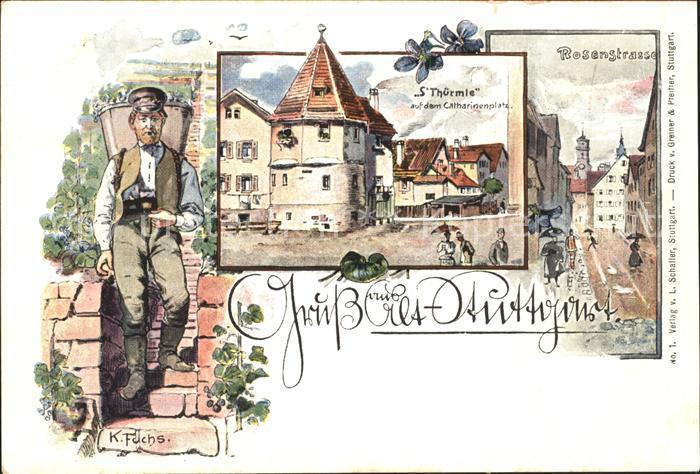 „S'Thürmle"
auf dem Catharinenplatz.
Rosenstrasse
Gruß aus Alt-Stuttgart.
K. Fuchs.
No. 1. Verlag v. L. Schaller, Stuttgart. — Druck v. Greiner & Pfeiffer, Stuttgart.